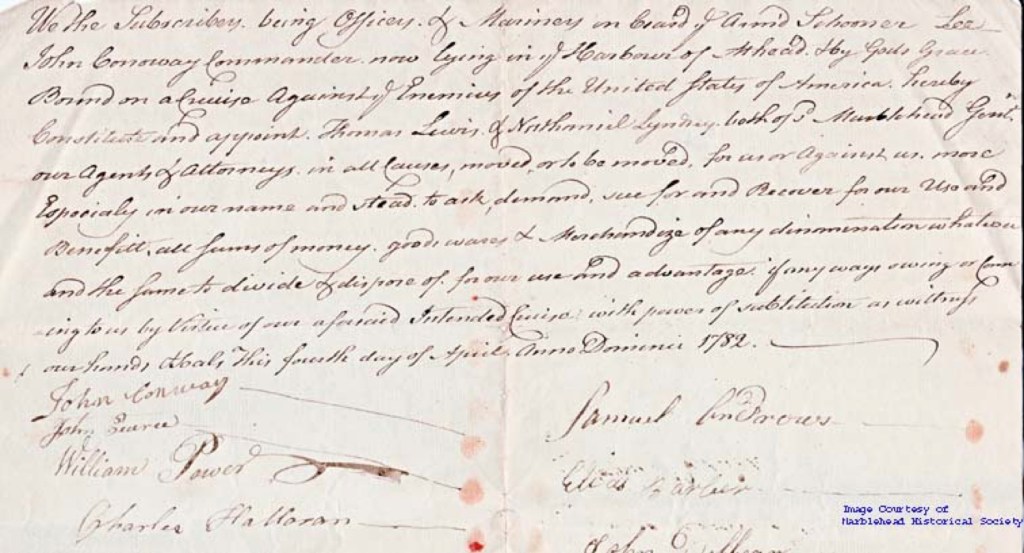 We the Subscribers. being Officers. & Mariners on board ye Armd Schooner Lee
John Conoway Commander. now lying in ye Harbour of Mhead. & by Gods Grace
Bound on a Cruise Against ye Enemies of the United States of America. hereby
Constitute and appoint. Thomas Lewis. & Nathaniel Lyndsey. both of sd Marblehead Gentn
our Agents & Attorneys. in all Causes, moved, or to be moved. for us or Against us. more
Especialy in our name and stead. to ask, demand. sue for and Recover for our Use and
Benefitt. all sums of money. goods wares & Merchandize of any dinomination whatever
and the same to divide & dispose of. for our use and advantage. if any ways owing or Com
ing to us by Virtue of our aforsaid Intended Cruise. with power of substitution as wittness
our hands & Seals, This fourth day of April, Anno Domini 1782.
John Conway
John Pearce
Samuel Androws
William Power
Elias
Charles Halloran
John
Image Courtesy of
Marblehead Historical Society